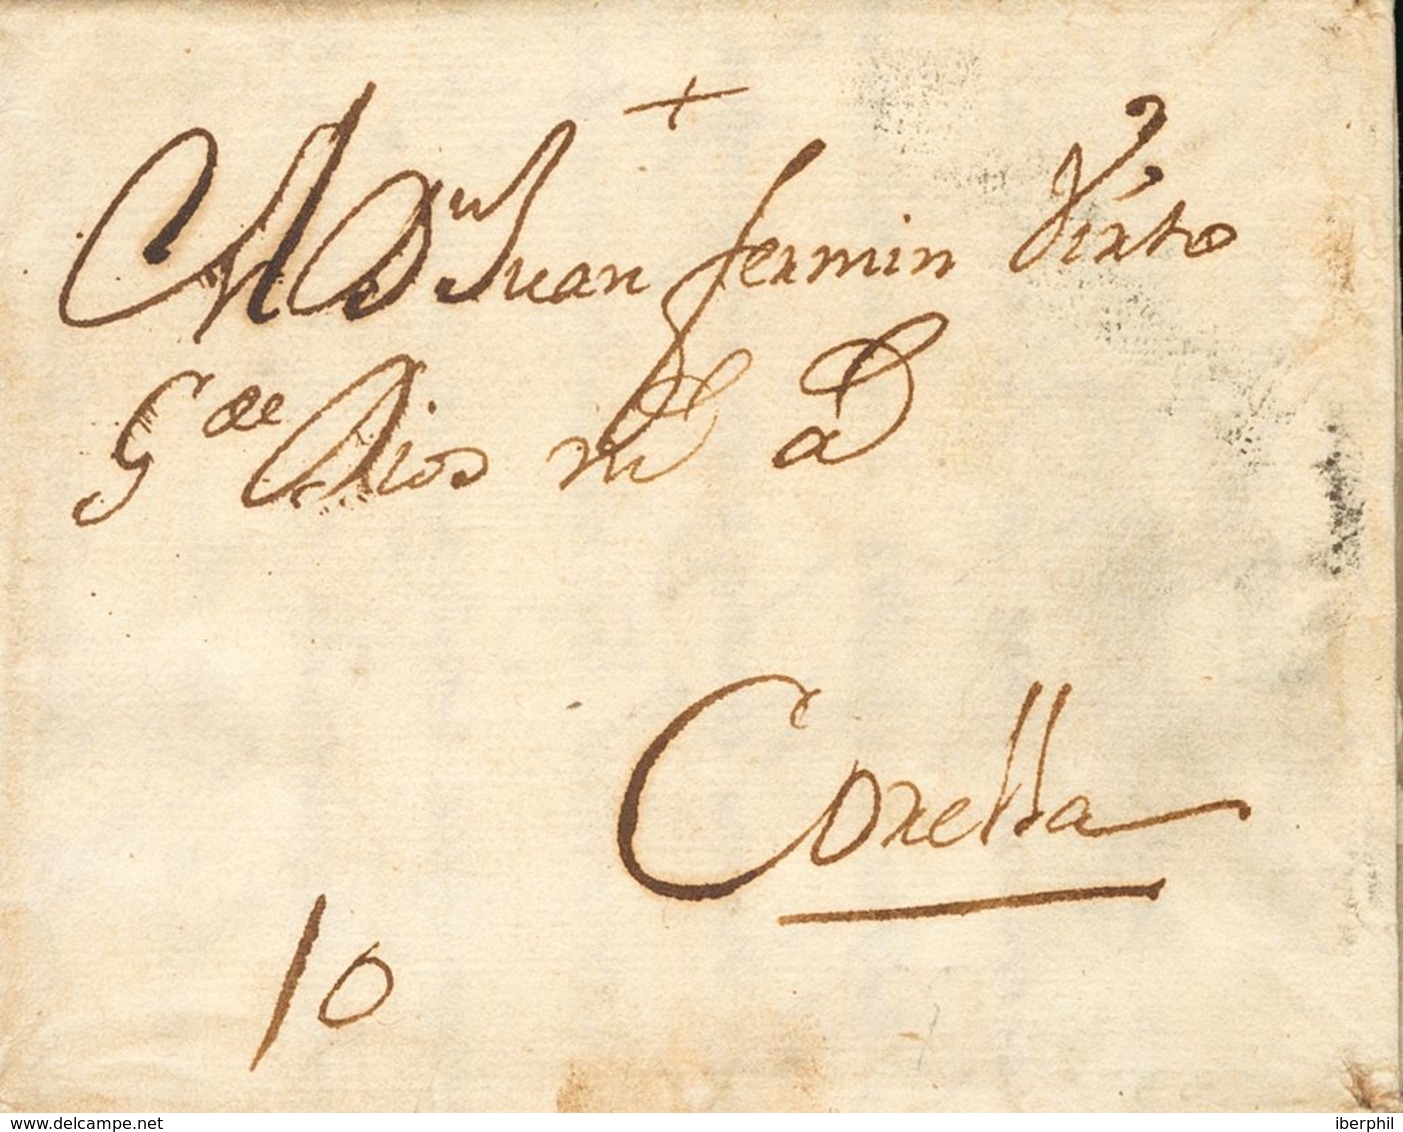 +
A Dn Juan fermin Virto
Gde Dios ms as
Corella
10
delcampe.net
iberphil